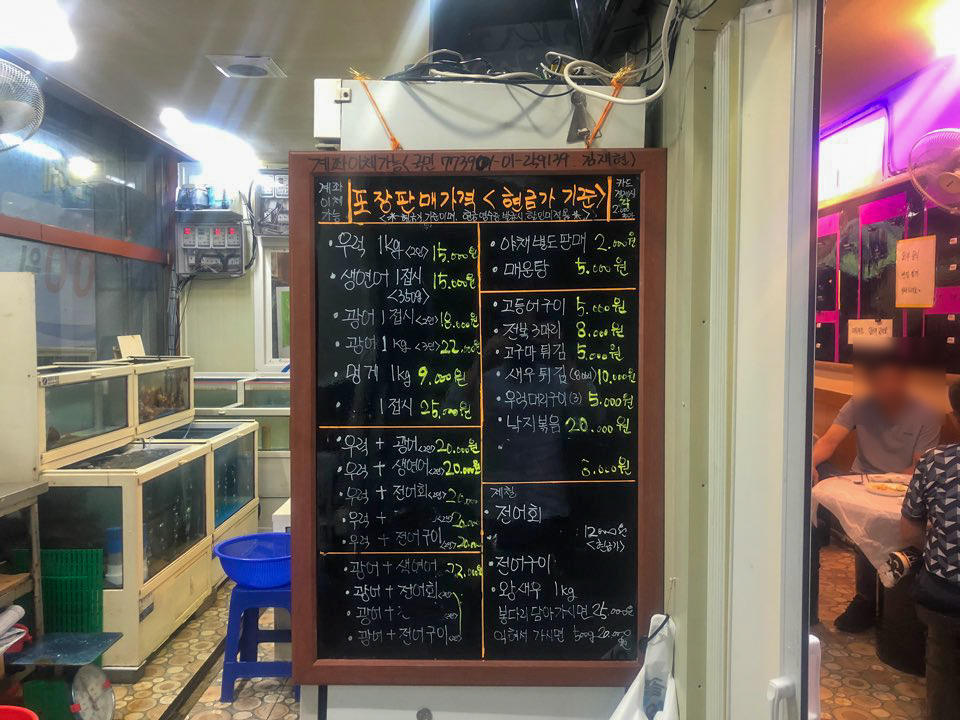 계좌이체가능(국민 773901-01-249139 김재현)
계좌
이체
가능
포장판매가격 <현금가 기준>
카드
• 우럭 1kg <2인> 15.000원
• 생연어 1접시 15.000원
<350g>
• 광어 1접시 <2인> 18.000원
• 광어 1kg <3인> 22.000원
• 멍게 1kg 9.000원
• 1접시 25.000원
• 우럭 + 광어 20.000원
• 우럭 + 생연어 20.000원
• 우럭 + 전어회
• 우럭 +
• 우럭 + 전어구이
• 광어 + 생연어 22.000원
• 광어 + 전어회
• 광어 +
• 광어 + 전어구이
• 야채별도판매 2.000원
• 매운탕 5.000원
• 고등어구이 5.000원
• 전복 3마리 8.000원
• 고구마 튀김 5.000원
• 새우튀김 10.000원
• 우럭머리구이 (3) 5.000원
• 낙지볶음 20.000원
8.000원
제철
• 전어회
<현금가>
• 전어구이
• 왕새우 1kg
봉다리 담아가시면 25.000원
익혀서 가시면 500g 20.000원